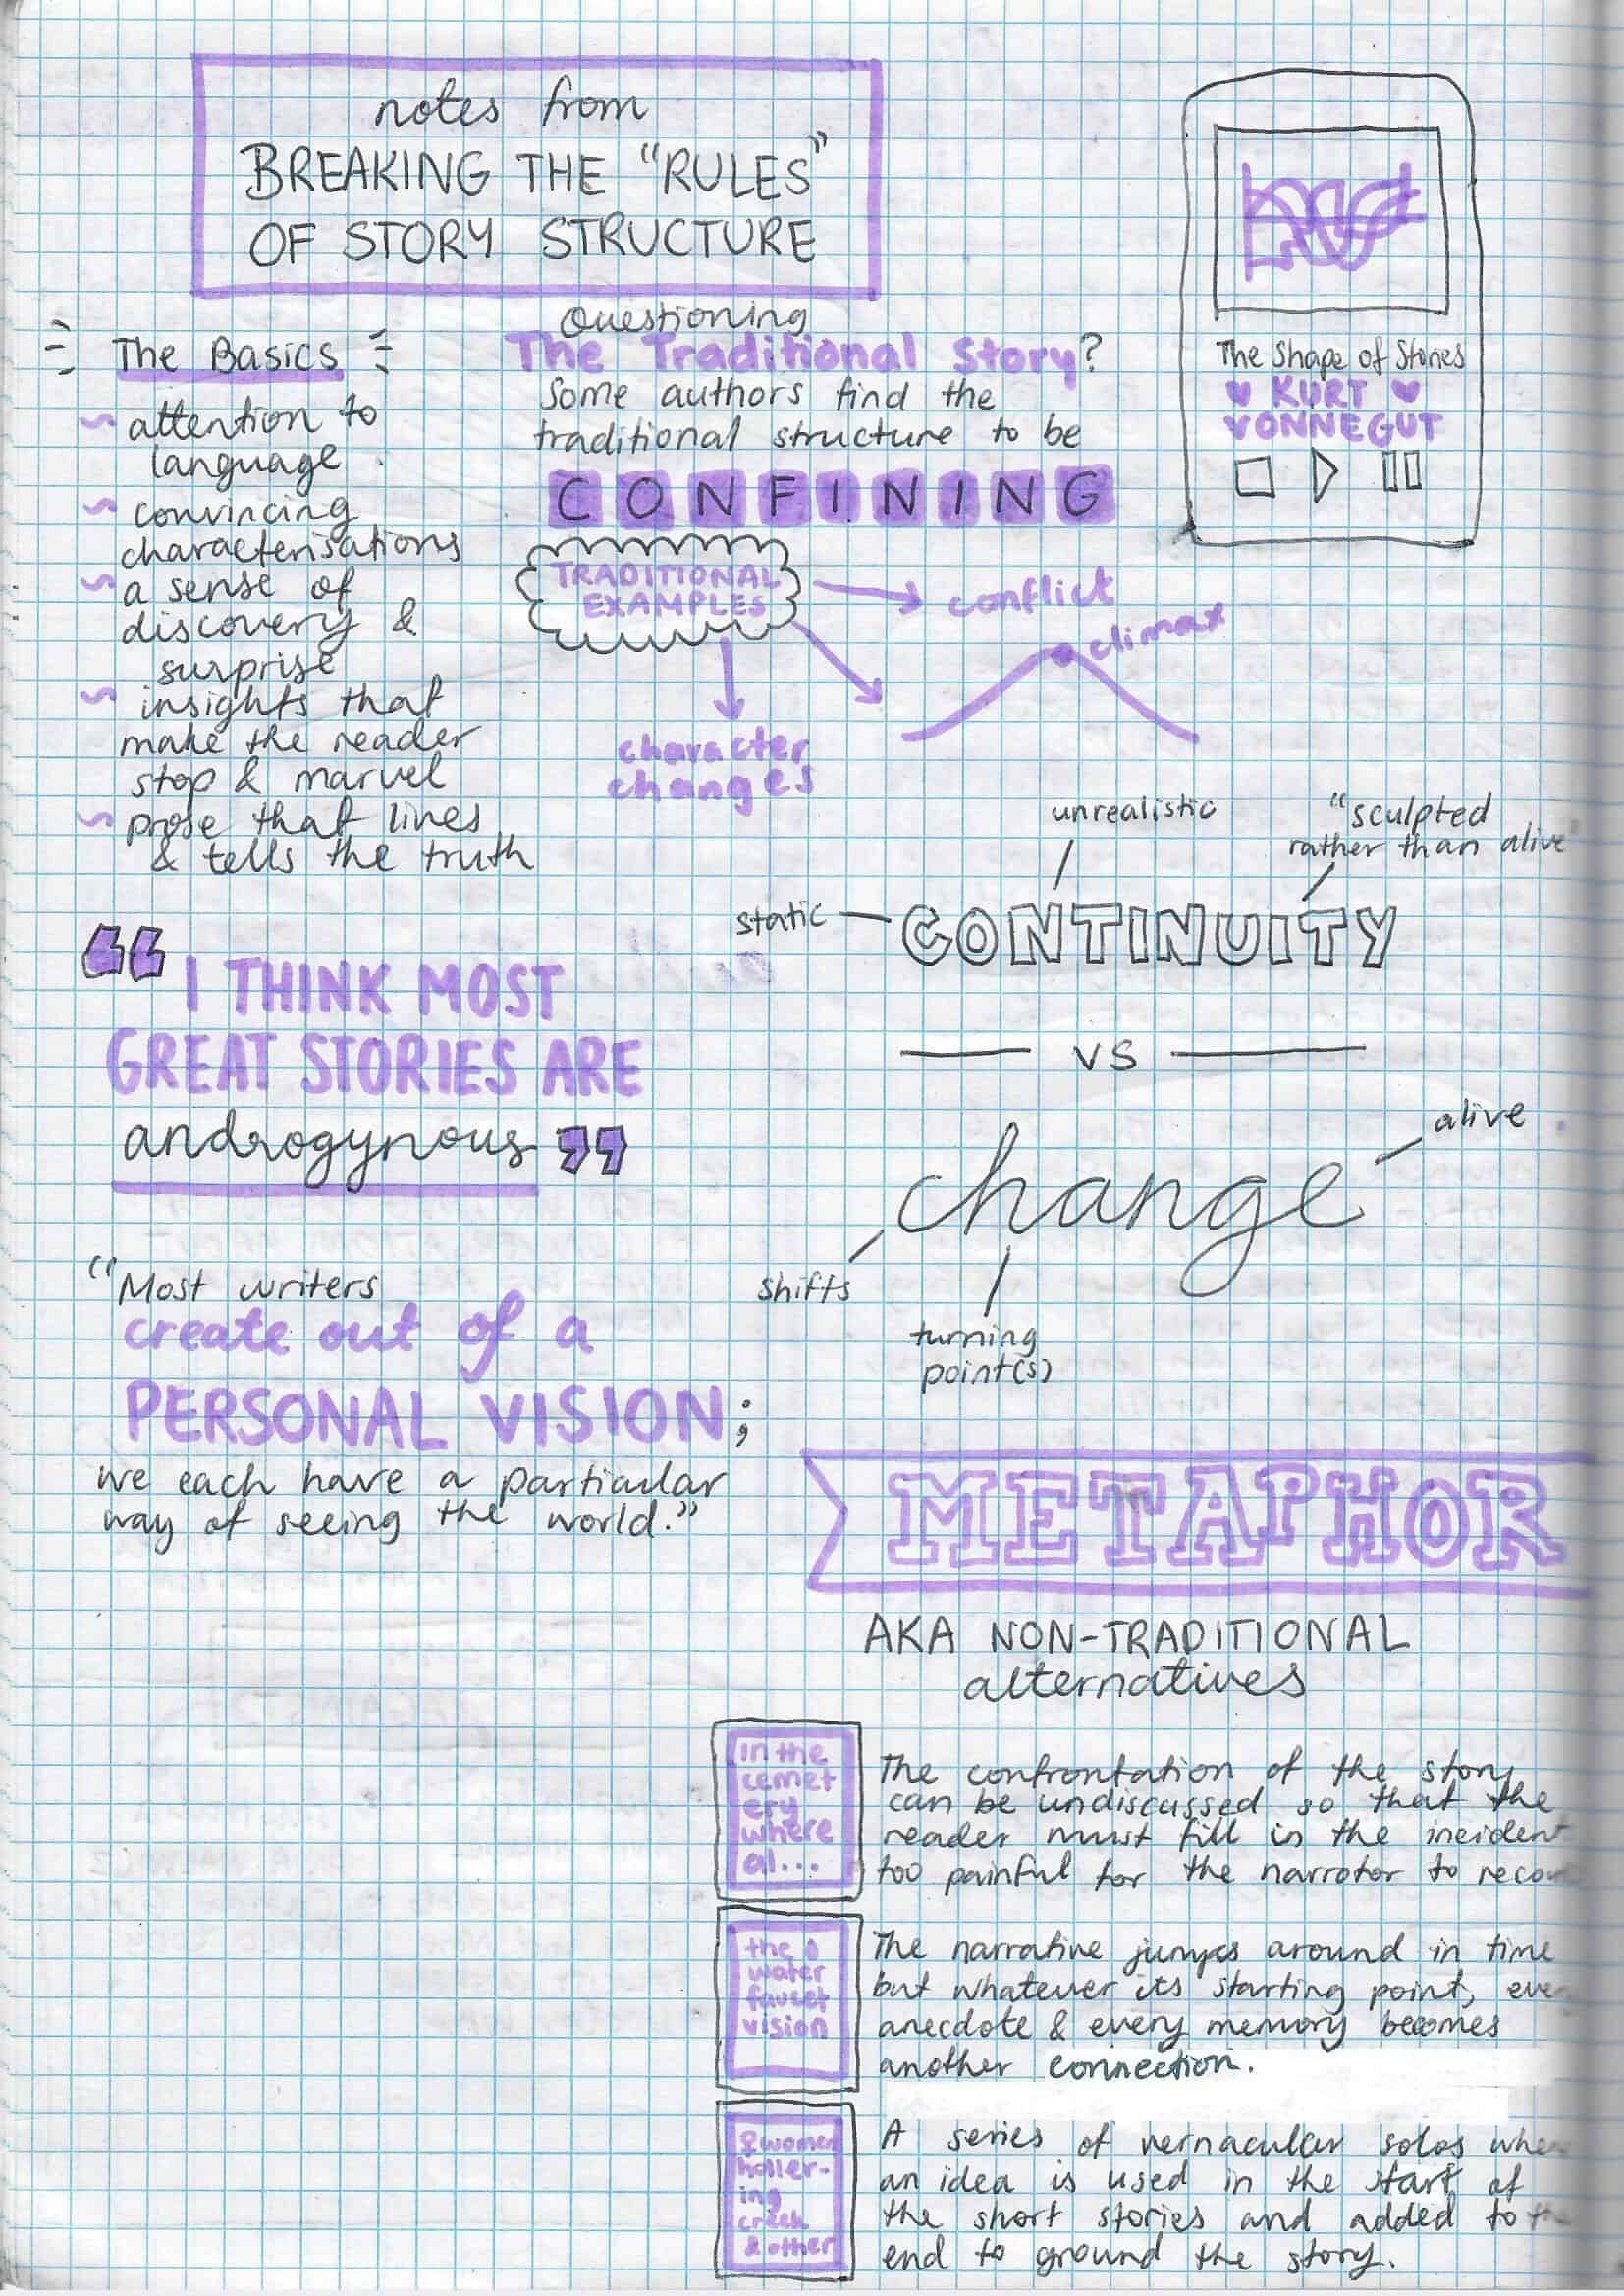 notes from
BREAKING THE "RULES"
OF STORY STRUCTURE
The Shape of Stories
KURT
VONNEGUT
The Basics
attention to
language
convincing
characterisations
a sense of
discovery &
surprise
insights that
make the reader
stop & marvel
prose that lines
& tells the truth
Questioning
The Traditional Story?
Some authors find the
traditional structure to be
CONFINING
TRADITIONAL
EXAMPLES
conflict
climax
character
changes
unrealistic
"sculpted
rather than alive"
static
CONTINUITY
VS
change
alive
shifts
turning
point(s)
"I THINK MOST
GREAT STORIES ARE
androgynous"
"Most writers
create out of a
PERSONAL VISION;
we each have a particular
way of seeing the world."
METAPHOR
AKA NON-TRADITIONAL
alternatives
In the
cemet
ery
where
al...
The confrontation of the story
can be undiscussed so that the
reader must fill in the incident
too painful for the narrator to
the
water
faucet
vision
The narrative jumps around in time
but whatever its starting point,
anecdote & every memory becomes
another connection.
women
holler-
ing
creek
& other
A series of vernacular solos
an idea is used in the start of
the short stories and added to the
end to ground the story.